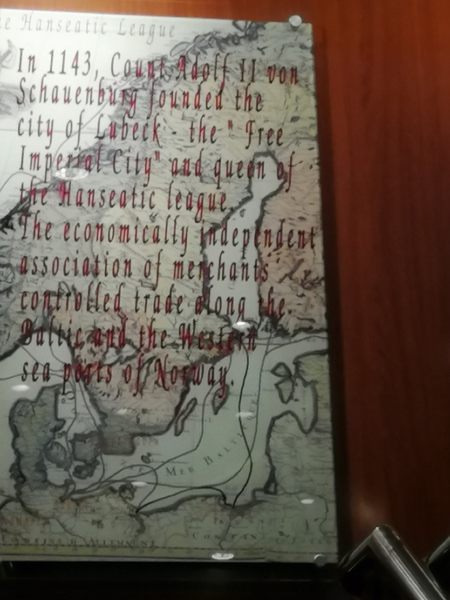 he Hanseatic League
In 1143, Count Adolf II von
Schauenburg founded the
city of Lubeck - the " Free
Imperial City" and queen of
the Hanseatic league.
The economically independent
association of merchants
controlled trade along the
Baltic and the Western
sea ports of Norway.
Mer Balt